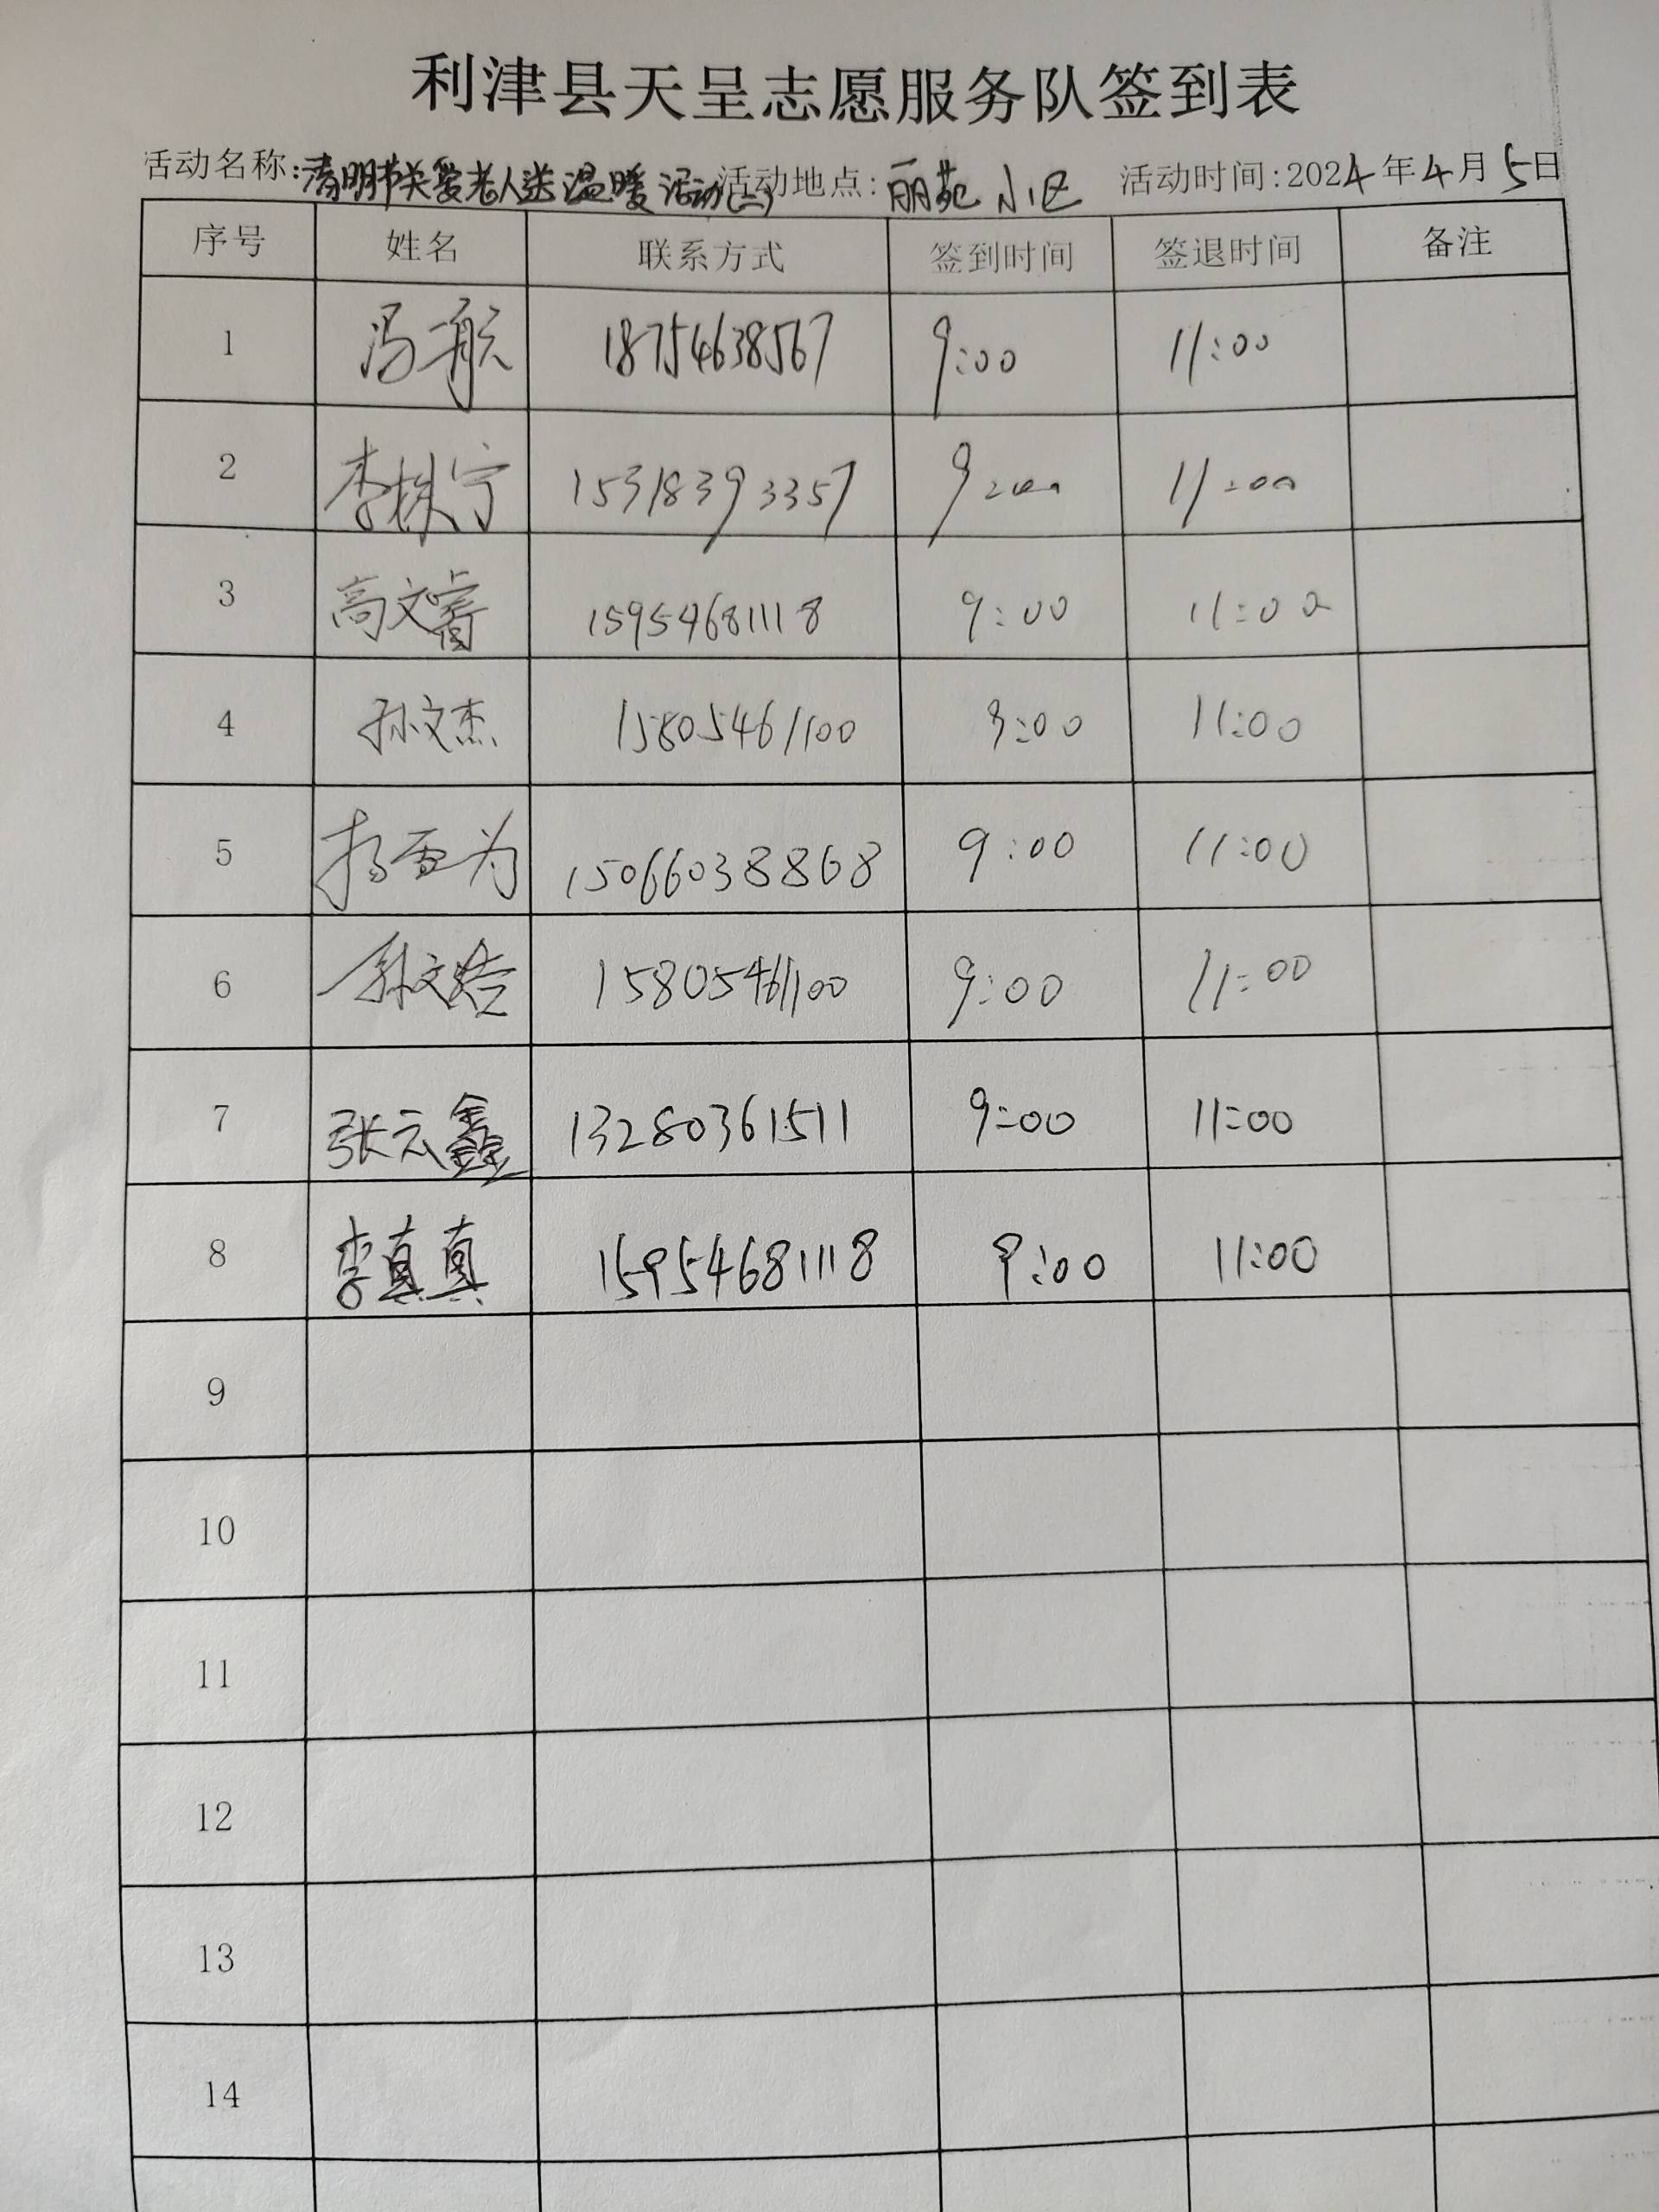 利津县天呈志愿服务队签到表
活动名称:清明节关爱老人送温暖活动(二) 活动地点:丽苑小区 活动时间:2024年4月5日
序号 姓名 联系方式 签到时间 签退时间 备注
1 冯航 18754638567 9:00 11:00
2 15318393357 9:00 11:00
3 高文睿 15954681118 9:00 11:00
4 孙文杰 15805461100 9:00 11:00
5 15066038868 9:00 11:00
6 15805461100 9:00 11:00
7 张云鑫 13280361511 9:00 11:00
8 李真真 15954681118 9:00 11:00
9
10
11
12
13
14